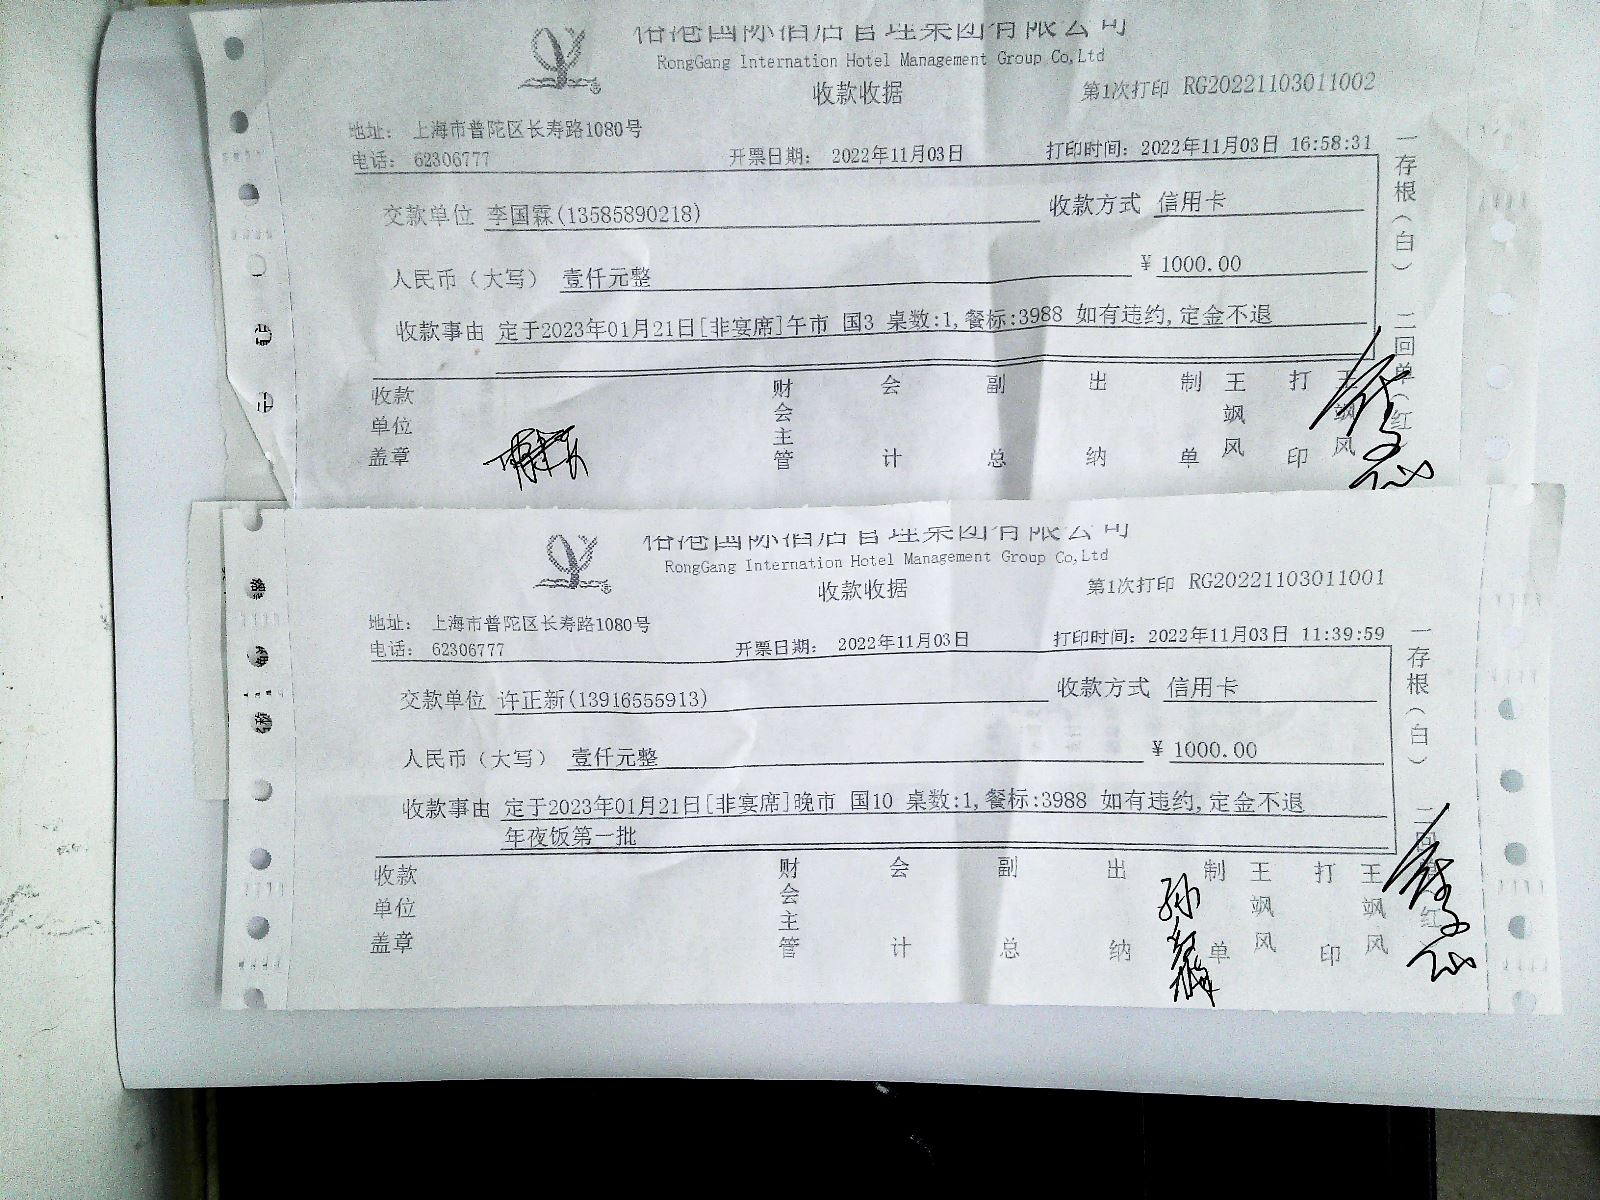 港国际酒店管理集团有限公司
RongGang Internation Hotel Management Group Co,Ltd
收款收据
第1次打印 RG20221103011002
地址: 上海市普陀区长寿路1080号
电话: 62306777
开票日期: 2022年11月03日
打印时间: 2022年11月03日 16:58:31
交款单位 李国霖(13585890218)
收款方式 信用卡
人民币(大写) 壹仟元整
¥ 1000.00
收款事由 定于2023年01月21日[非宴席]午市 国3 桌数:1,餐标:3988 如有违约,定金不退
收款单位盖章
财会主管
会计
副总
出纳
制单 王飒风
打印 王飒风
一存根(白) 二回单(红)
港国际酒店管理集团有限公司
RongGang Internation Hotel Management Group Co,Ltd
收款收据
第1次打印 RG20221103011001
地址: 上海市普陀区长寿路1080号
电话: 62306777
开票日期: 2022年11月03日
打印时间: 2022年11月03日 11:39:59
交款单位 许正新(13916555913)
收款方式 信用卡
人民币(大写) 壹仟元整
¥ 1000.00
收款事由 定于2023年01月21日[非宴席]晚市 国10 桌数:1,餐标:3988 如有违约,定金不退
年夜饭第一批
收款单位盖章
财会主管
会计
副总
出纳
制单 王飒风
打印 王飒风
一存根(白) 二回单(红